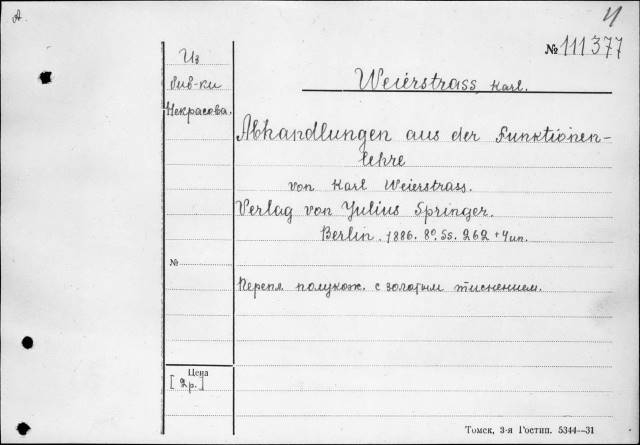 А
И
№ 111377
Из
биб-ки
Некрасова.
Weierstrass, Karl.
Abhandlungen aus der Funktionen-
lehre
von Karl Weierstrass.
Verlag von Julius Springer.
Berlin. 1886. 8º. Ss. 262 + 4 un.
№
Перепл. полукож. с золотым тиснением.
Цена
[2р.]
Томск, 3-я Гостип. 5344—31